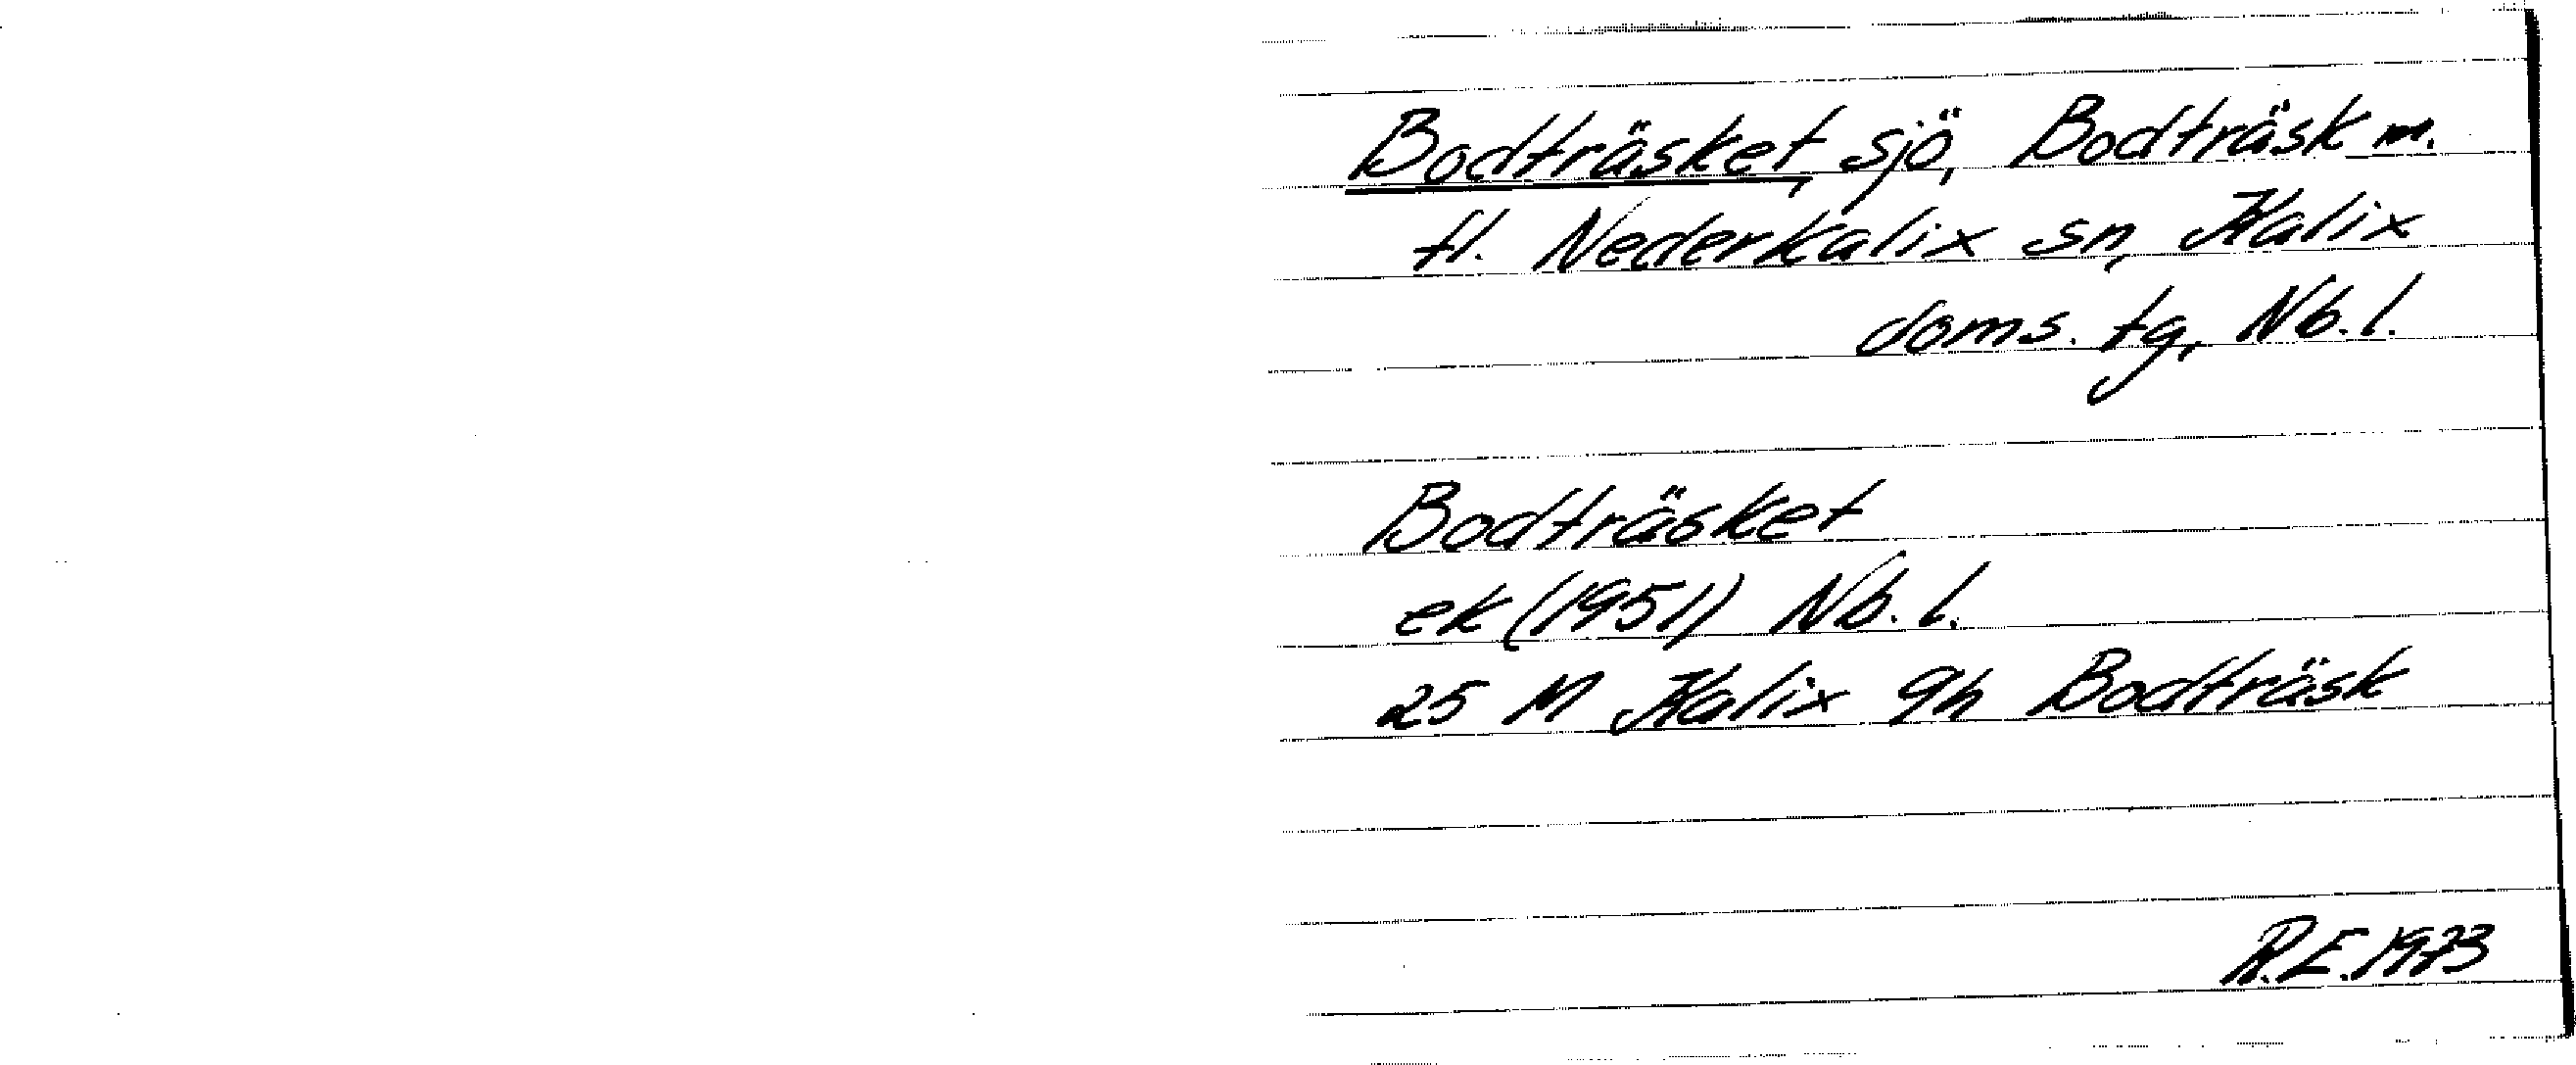 Bodträsket, sjö, Bodträsk m.
fl. Nederkalix sn, Kalix
doms. tg, Nb. l.
Bodträsket
ek (1951) Nb. l.
25 M Kalix 9h Bodträsk
R.E. 1973